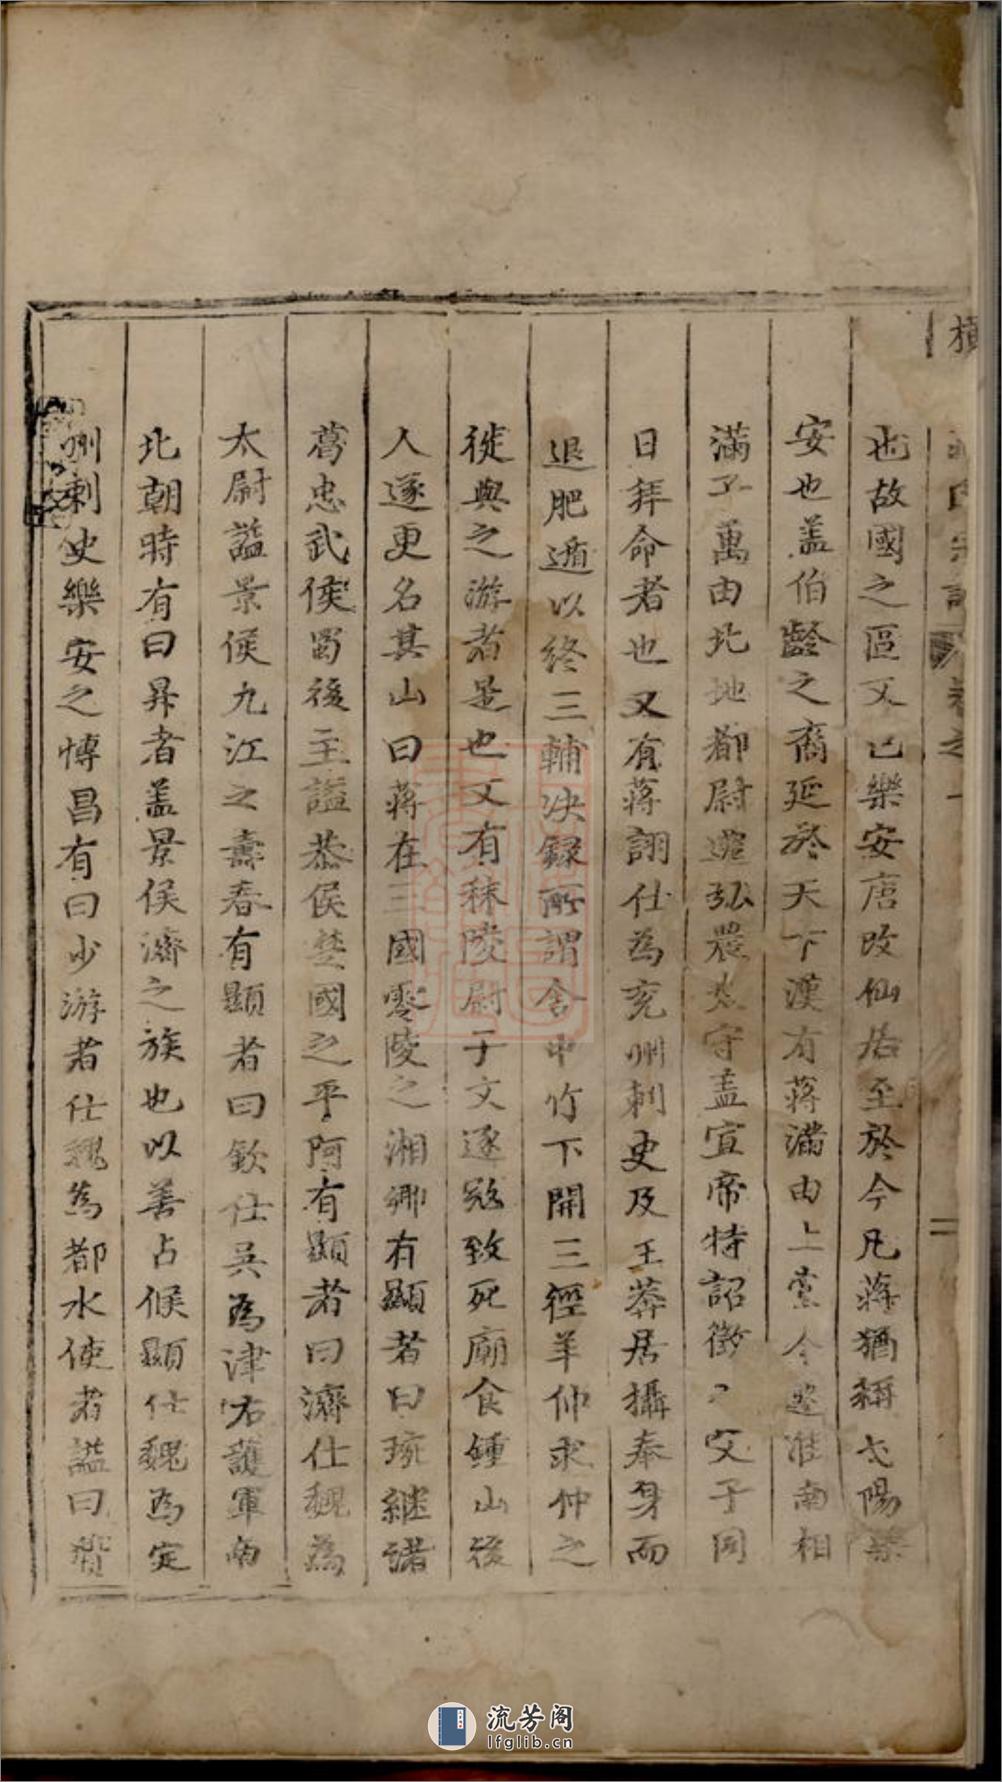 橫
蔣氏宗譜 卷之一
二
也故國之區又已樂安唐改仙居至於今凡蔣猶稱弋陽樂
安也盖伯齡之裔延於天下漢有蔣滿由上黨令遷淮南相
滿子萬由北地都尉遷弘農太守盖宣帝特詔徵父子同
日拜命者也又有蔣詡仕為兗州刺史及王莽居攝奉身而
退肥遁以終三輔决録所謂舍中竹下開三徑羊仲求仲之
徙與之游者是也又有秣陵尉子文逐寇致死廟食鍾山後
人遂更名其山曰蔣在三國零陵之湘鄉有顯者曰琬繼諸
葛忠武侯蜀後主謚恭侯楚國之平阿有顯者曰濟仕魏為
太尉謚景侯九江之壽春有顯者曰欽仕吳為津右護軍南
北朝時有曰昇者盖景侯濟之族也以善占候顯仕魏為定
州刺史樂安之博昌有曰少游者仕魏為都水使者謚曰質
流芳阁
lfglib.cn